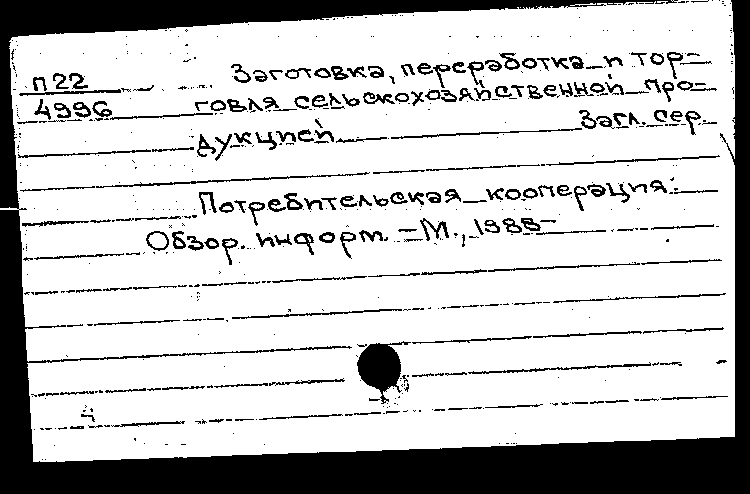 Заготовка, переработка и тор-
п22
4996 говля сельскохозяйственной про-
дукцией Загл. сер.
Потребительская кооперация:
Обзор. информ. – М., 1988–
4